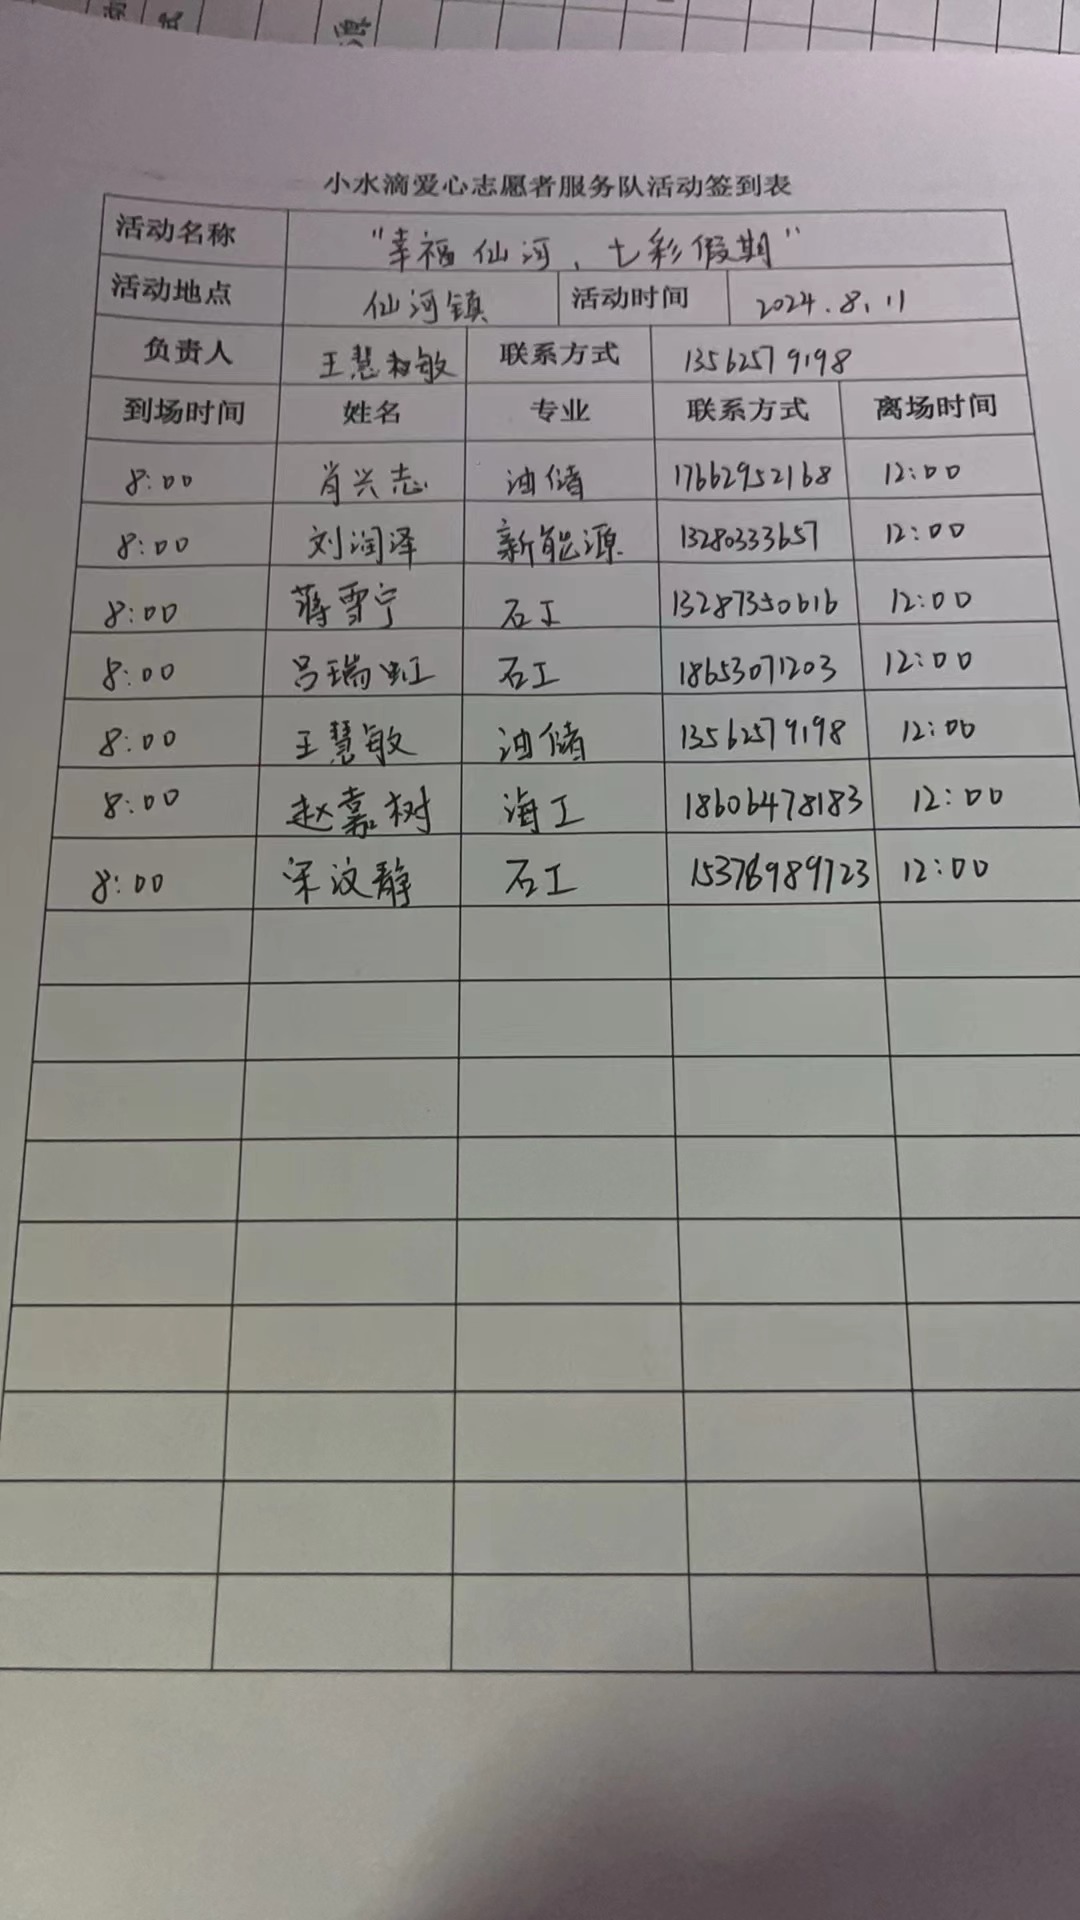 小水滴爱心志愿者服务队活动签到表
活动名称 "幸福仙河、七彩假期"
活动地点 仙河镇 活动时间 2024.8.11
负责人 王慧敏 联系方式 13562579198
到场时间 姓名 专业 联系方式 离场时间
8:00 肖兴志 油储 17662952168 12:00
8:00 刘润泽 新能源 13280333657 12:00
8:00 蒋雪宁 石工 13287350616 12:00
8:00 吕瑞虹 石工 18653071203 12:00
8:00 王慧敏 油储 13562579198 12:00
8:00 赵嘉树 海工 18606478183 12:00
8:00 宋汶静 石工 15376989723 12:00